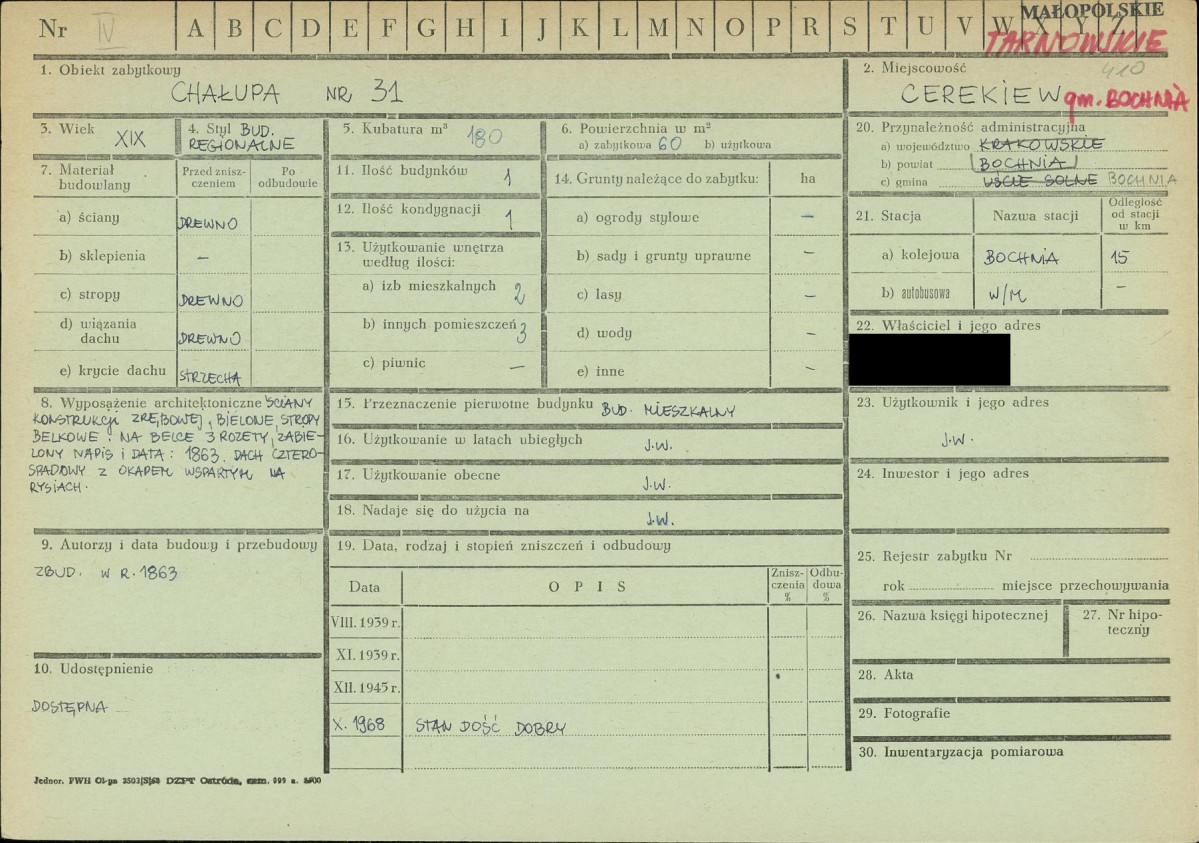 Nr IV A B C D E F G H I J K L M N O P R S T U V W X Y Z
MAŁOPOLSKIE
TARNOWSKIE
410
1. Obiekt zabytkowy
CHAŁUPA NR 31
2. Miejscowość
CEREKIEW gm. BOCHNIA
3. Wiek
XIX
4. Styl BUD.
REGIONALNE
5. Kubatura m³ 180
6. Powierzchnia w m²
a) zabytkowa 60 b) użytkowa
7. Materiał budowlany
Przed zniszczeniem
Po odbudowie
a) ściany DREWNO
b) sklepienia –
c) stropy DREWNO
d) wiązania dachu DREWNO
e) krycie dachu STRZECHA
8. Wyposażenie architektoniczne ŚCIANY
KONSTRUKCJI ZRĘBOWEJ, BIELONE, STROPY
BELKOWE. NA BELCE 3 ROZETY, ZABIE-
LONY NAPIS i DATA: 1863. DACH CZTERO-
SPADOWY Z OKAPEM WSPARTYM NA
RYSIACH.
9. Autorzy i data budowy i przebudowy
ZBUD. W R. 1863
10. Udostępnienie
DOSTĘPNA
11. Ilość budynków 1
12. Ilość kondygnacji 1
13. Użytkowanie wnętrza
według ilości:
a) izb mieszkalnych 2
b) innych pomieszczeń 3
c) piwnic –
14. Grunty należące do zabytku: ha
a) ogrody stylowe –
b) sady i grunty uprawne –
c) lasy –
d) wody –
e) inne –
15. Przeznaczenie pierwotne budynku BUD. MIESZKALNY
16. Użytkowanie w latach ubiegłych J.W.
17. Użytkowanie obecne J.W.
18. Nadaje się do użycia na J.W.
19. Data, rodzaj i stopień zniszczeń i odbudowy
Data O P I S Zniszczenia % Odbudowa %
VIII. 1939 r.
XI. 1939 r.
XII. 1945 r.
X. 1968 STAN DOŚĆ DOBRY
20. Przynależność administracyjna
a) województwo KRAKOWSKIE
b) powiat BOCHNIA
c) gmina UŚCIE SOLNE BOCHNIA
21. Stacja Nazwa stacji Odległość od stacji w km
a) kolejowa BOCHNIA 15
b) autobusowa W/M –
22. Właściciel i jego adres
23. Użytkownik i jego adres
J.W.
24. Inwestor i jego adres
25. Rejestr zabytku Nr
rok miejsce przechowywania
26. Nazwa księgi hipotecznej
27. Nr hipo-
teczny
28. Akta
29. Fotografie
30. Inwentaryzacja pomiarowa